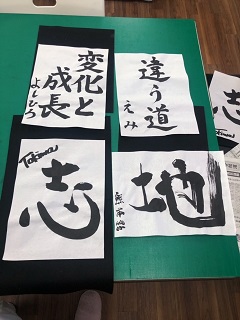 変化と
成長
よしひろ
違う道
えみ
Takuma
志
地